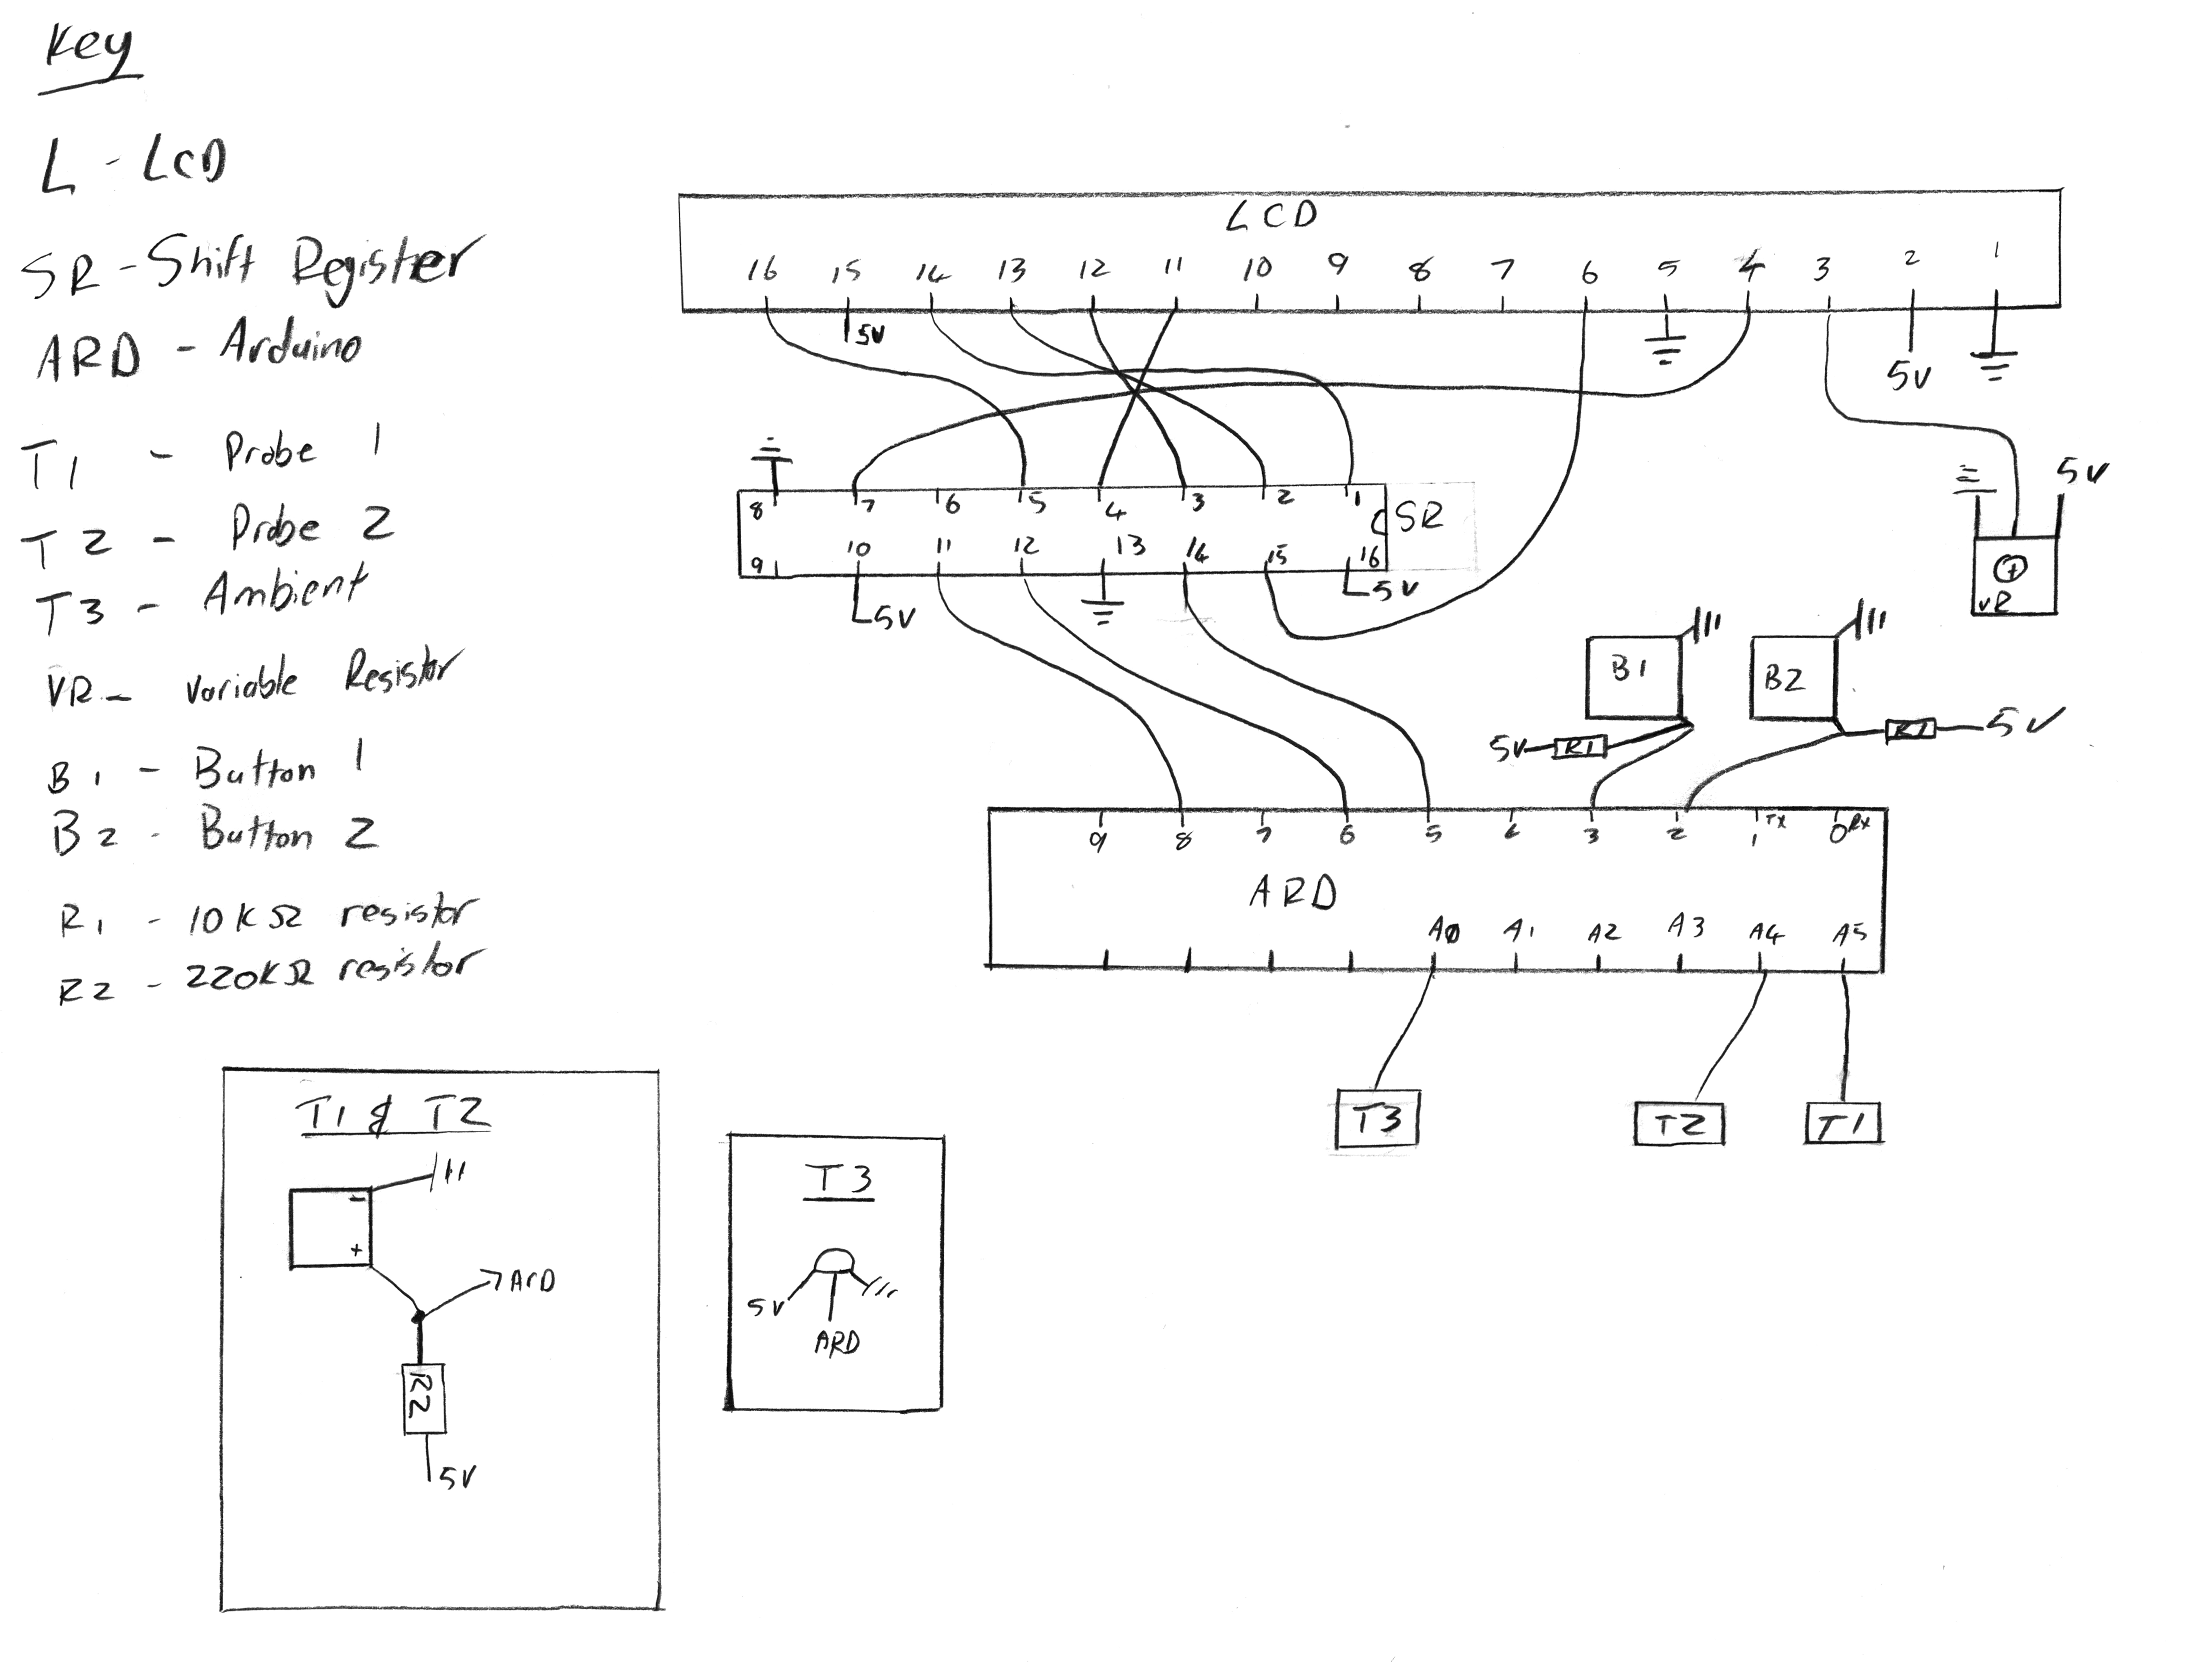 Key
L - LCD
SR - Shift Register
ARD - Arduino
T1 - Probe 1
T2 - Probe 2
T3 - Ambient
VR - Variable Resistor
B1 - Button 1
B2 - Button 2
R1 - 10KΩ resistor
R2 - 220KΩ resistor
LCD
16 15 14 13 12 11 10 9 8 7 6 5 4 3 2 1
5V
5V
8 7 6 5 4 3 2 1
SR
9 10 11 12 13 14 15 16
5V
5V
5V
VR
B1
B2
5V R1
R1 5V
9 8 7 6 5 4 3 2 1 TX 0 RX
ARD
A0 A1 A2 A3 A4 A5
T3
T2
T1
T1 & T2
-
+
ARD
R2
5V
T3
5V
ARD